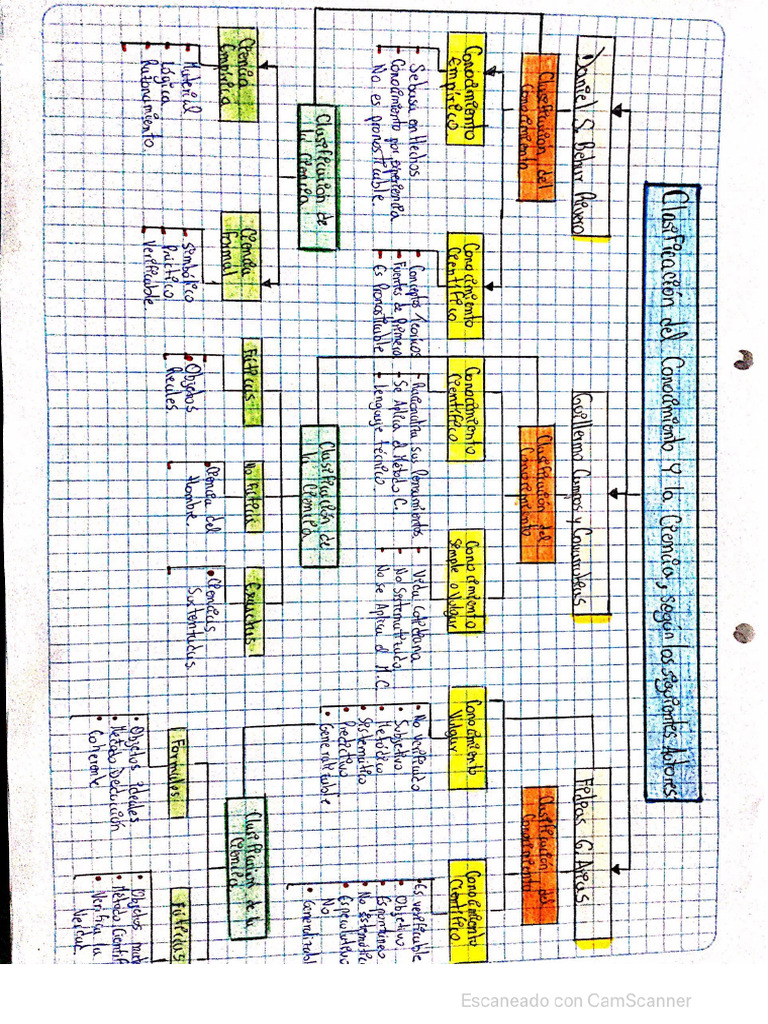 Clasificación del Conocimiento y la Ciencia, según los siguientes Autores
Daniel S. Behar Rivero
Clasificación del
Conocimiento
Conocimiento
Empírico
Se basa en Hechos
Conocimiento por experiencia
No es pronosticable.
Conocimiento
Científico
Conceptos Teóricos
Fuentes de Primera
Es Pronosticable
Clasificación de
la Ciencia
Ciencia
Empírica
Material
Lógica
Razonamiento.
Ciencia
Formal
Simbólico
Práctico
Verificable
Guillermo Campos y Covarrubias
Clasificación del
Conocimiento
Conocimiento
Científico
Racionaliza sus Pensamientos
Se Aplica el Método C.
Lenguaje técnico.
Conocimiento
Simple o Vulgar
Vida Cotidiana
No Sistematizado
No se Aplica el M.C
Clasificación de
la Ciencia
Fácticas
Objetos
Reales.
No Fáctica
Ciencia del
Hombre.
Exactas
Ciencias
Sustentadas.
Fidias G Arias
Clasificación del
Conocimiento
Conocimiento
Vulgar
No verificado
Subjetivo
Metódico
Sistemático
Predictivo
Generalizable
Conocimiento
Científico
Es verificable
Objetivo
Espontáneo
No sistemático
Especulativo
No
Generalizabl
Clasificación de la
Ciencia
Formales
Objetos Ideales
Método Deducción
Coherente
Fácticas
Objetos mate
Método Científ
Verifica la
Verdad.
Escaneado con CamScanner